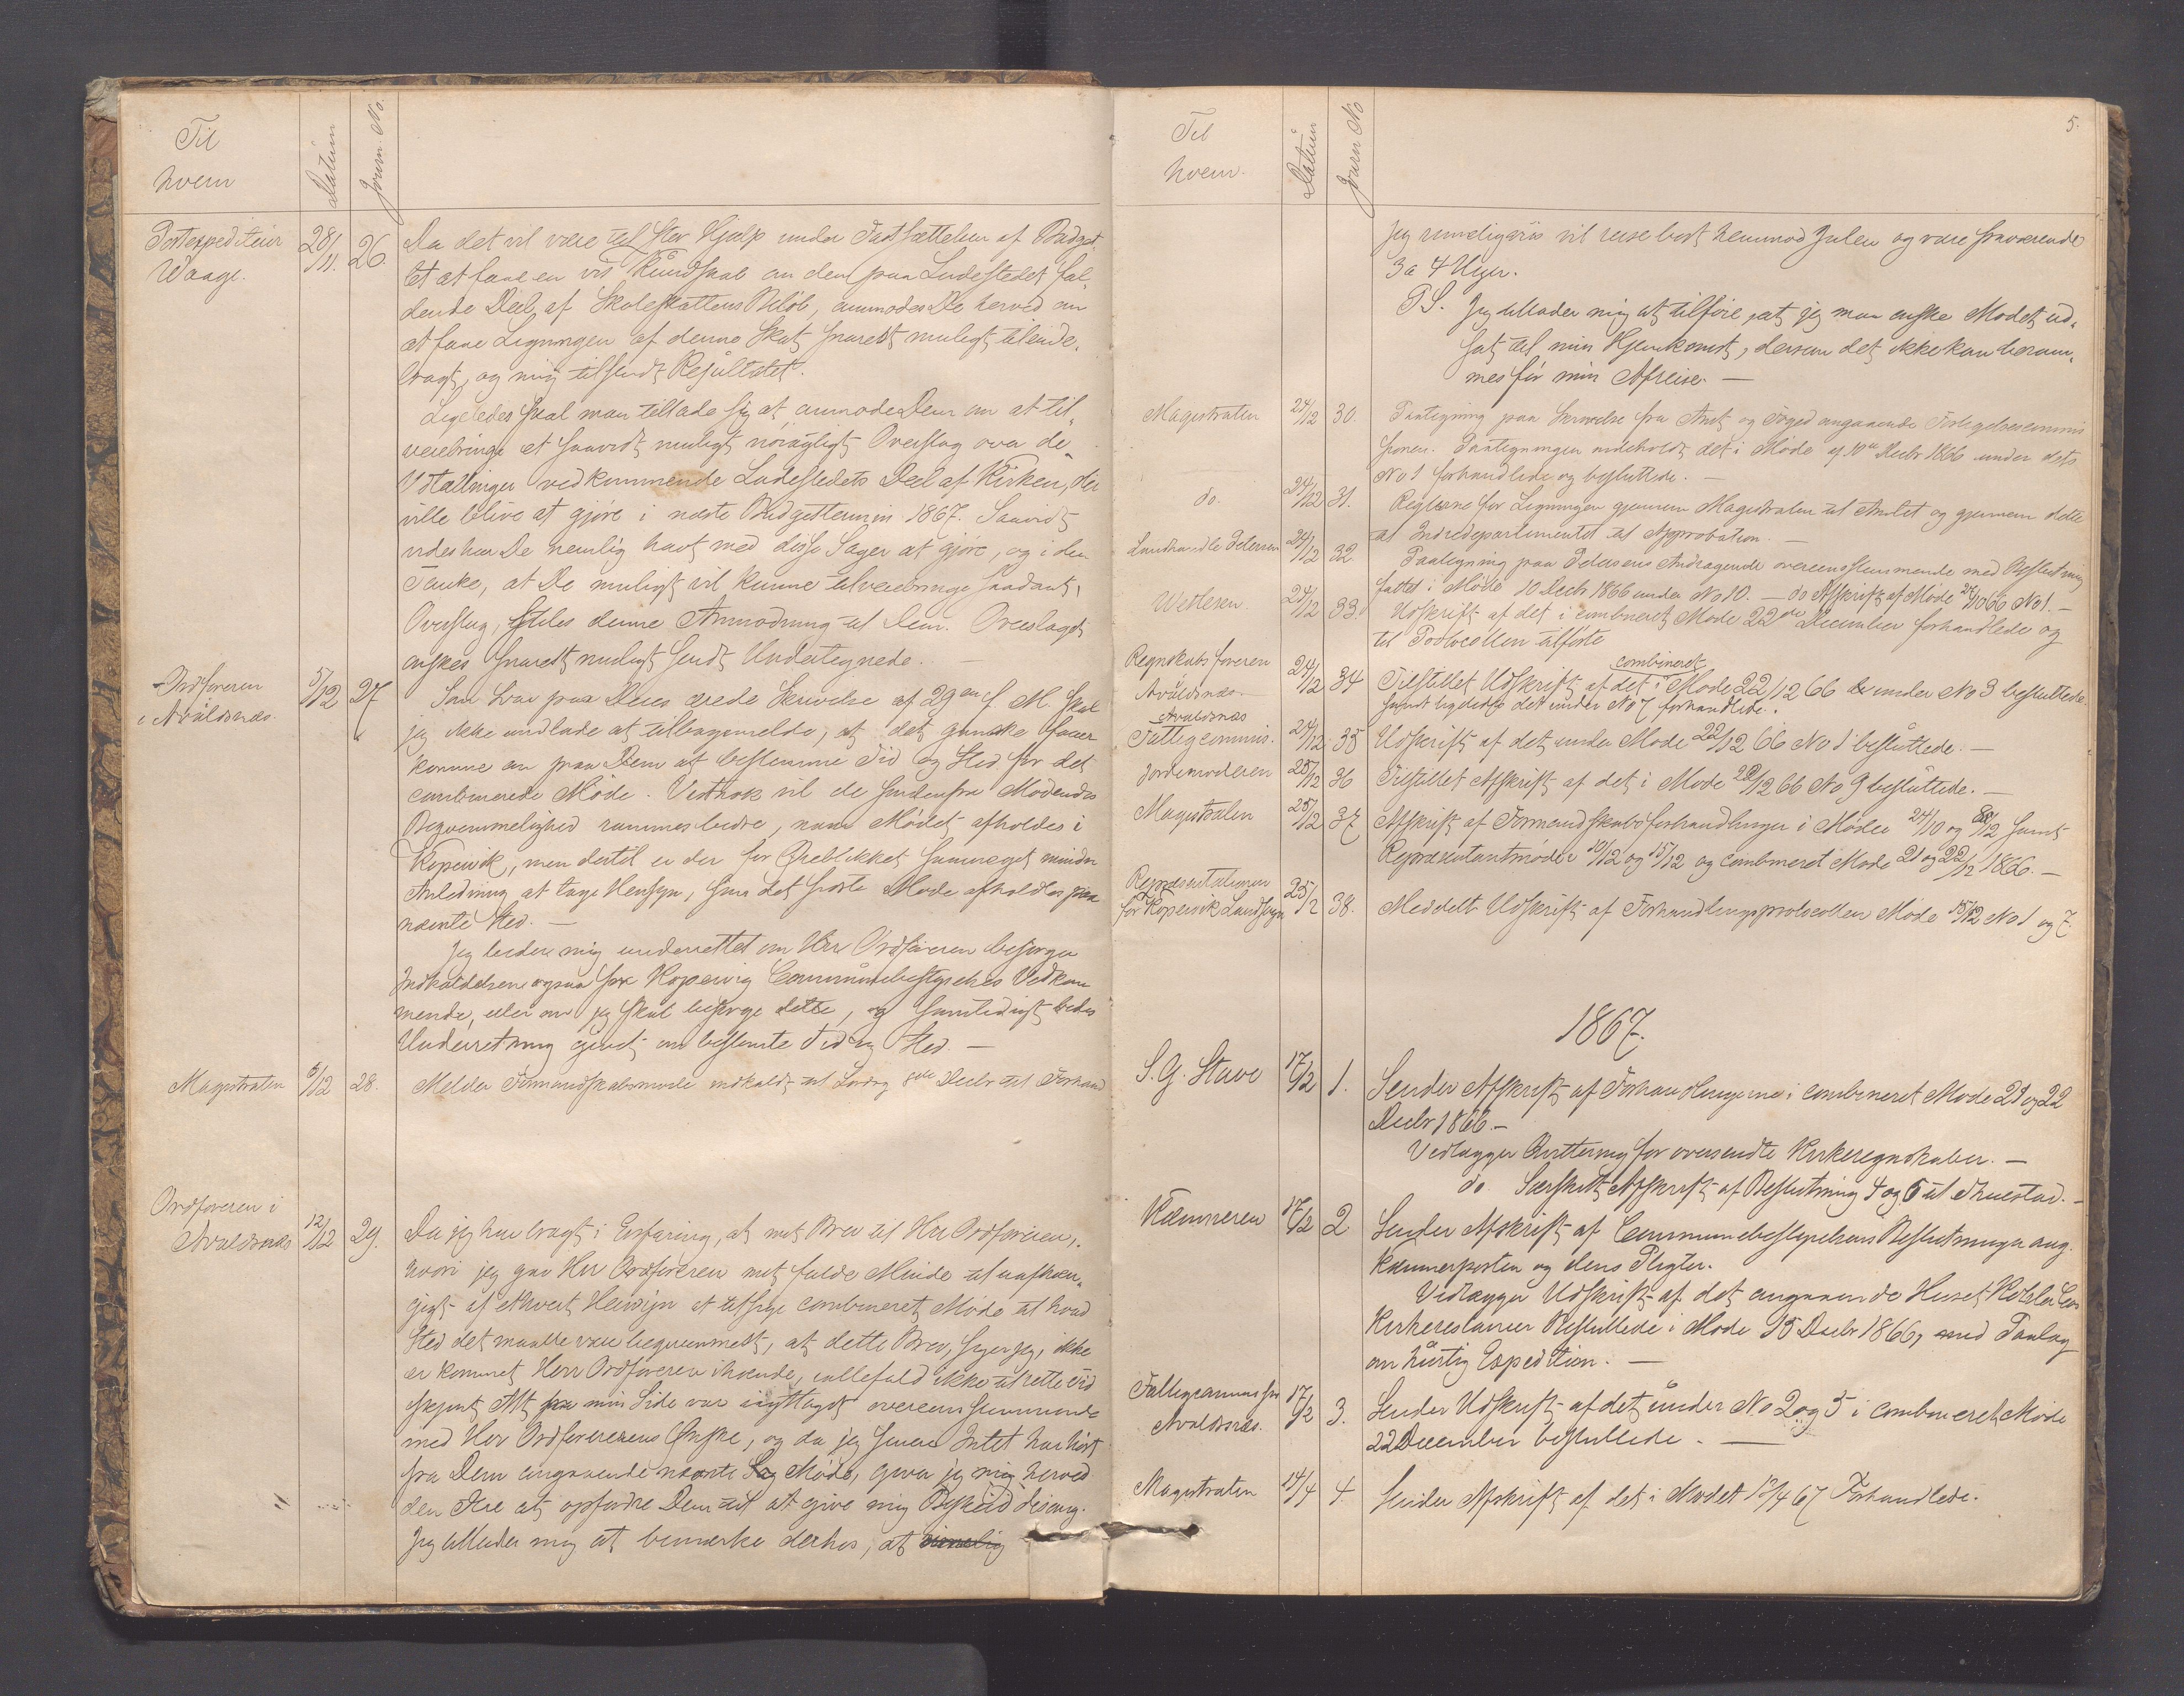 Til
hvem
Datum
Journ. No.
Postexpediteur
Waage.
28/11.
26.
Da det vil være til stor Hjælp under Fastsættelsen af Budget,
tet at faae en vis Kundskab om den paa Ladestedet fal,
dende Deel af Skoleskattens Beløb, anmodes De herved om
at faae Ligningen af denne Skat snarest muligt tilende,
bragt, og mig tilsendt Resultatet.
Ligeledes skal man tillade sig at anmode Dem om at til,
veiebringe et saavidt muligt nöiagtigt Overslag over de
Udtællinger vedkommende Ladestedets Deel af Kirken, der
ville blive at gjöre i næste Budgettermin 1867. Saavidt
vides har De nemlig havt med disse Sager at gjöre, og i den
Tanke, at De muligt vil kunne tilveiebringe saadant,
Overslag, stiles denne Anmodning til Dem. Overslaget
önskes snarest muligt sendt Undertegnede. —
Ordföreren
i Avaldsnæs.
5/12
27
Som Svar paa Deres ærede Skrivelse af 29en f. M. skal
jeg ikke undlade at tilbagemelde, at det ganske faaer
komme an paa Dem at bestemme Tid og Sted for det
combinerede Möde. Vistnok vil de Mödendes
Beqvemmelighed rammes bedre, naar Mödet afholdes i
Kopervik, men dertil er der for Öieblikket mindre
Anledning at tage Hensyn, som det sidste Möde afholdtes paa
nævnte Sted. —
Jeg beder mig underrettet om Herr Ordföreren besörger
Indkaldelsen ogsaa for Kopervig Communebestyrelses Vedkom
mende, eller om jeg skal besörge dette, og samtidigt bedes
Underretning givet om bestemte Tid og Sted. —
Magistraten
5/12
28.
Melder Formandskabsmöde indkaldt til Lördag 8de Decbr til Forhand
Ordföreren i
Avaldsnæs
12/12
29.
Da jeg har bragt i Erfaring, at mit Brev til Herr Ordföreren,
hvori jeg gav Herr Ordföreren mit fulde Minde til uafhæn,
gigt af ethvert Hensyn at udsige combineret Möde til hvad
Sted det maatte være beqvemmest, at dette Brev, siger jeg, ikke
er kommet Herr Ordföreren ihænde, iallefald ikke til rette Tid
skjönt Alt fra min Side var iagttaget overeensstemmende
med Herr Ordförerens Önske, og da jeg senere Intet har hört
fra Dem angaaende nævnte Sag Möde, giver jeg mig herved
den Ære at opfordre Dem til at give mig Besked desang.
Jeg tillader mig at bemærke derhos, at rimelig
5.
Til
hvem.
Datum
Journ No
jeg rimeligviis vil reise bort henimod Julen og være fraværende
3 a 4 Uger.
P.S. Jeg tillader mig at tilföie, at jeg maa önske Mödet ud,
sat til min Hjemkomst, dersom det ikke kan beram,
mes för min Afreise. —
Magistraten
24/12
30.
Paategning paa Skrivelse fra Amt og Foged angaaende Forligelsescommis
sionen. Paategningen indeholdt det i Möde af 10de Decbr 1866 under dets
No 1 forhandlede og besluttede. —
do.
24/12
31.
Reglerne for Ligningen gjennem Magistraten til Amtet og gjennem dette
til Indredepartementet til Approbation. —
Landhandler Petersen
24/12
32
Paategning paa Petersens Andragende overeensstemmende med Beslutning
fattet i Möde 10 Decbr 1866 under No 10. — do Afskrift af Möde 24/10 66 No 1. —
Wetlesen.
24/12
33.
Udskrift af det i combineret Möde 22de December forhandlede og
til Protocollen tilförte
Regnskabsföreren
Avaldsnæs
24/12
34
Tilstillet Udskrift af det i combineret Möde 22/12 66 under No 3 besluttede.
samt ligeledes det under No 7 forhandlede.
Avaldsnæs
Fattigcommis.
24/12
35
Udskrift af det under Möde 22/12 66 No 1 besluttede. —
Jordemoderen
25/12
36
Tilstillet Afskrift af det i Möde 22/12 66 No 9 besluttede. —
Magistraten
25/12
37
Afskrift af Formandskabsforhandlinger i Möder 24/10 og /12 samt
Repræsentantmöder 10/12 og 15/12 og combineret Möde 21 og 22/12 1866. —
Repræsentationen
for Kopervik Landsogn
25/12
38.
Meddelt Udskrift af Forhandlingsprotocollen Möde 15/12 No 1 og 7.
1867.
S. G. Stave
17/2
1.
Sender Afskrift af Forhandlingerne i combineret Möde 21 og 22
Decbr 1866. —
Vedlægger Qvittering for oversendte Kirkeregnskaber. —
do. Særskilt Afskrift af Beslutning 4 og 5 til
Kæmneren
17/2
2
Sender Afskrift af Communebestyrelsens Beslutninger ang.
Kæmnerposten og dens Pligter.
Vedlægger Udskrift af det angaaende Huset
Besluttede i Möde 15 Decbr 1866, med Paalag
om hurtig Expedition. —
Fattigcommission
Avaldsnæs.
17/2
3.
Sender Udskrift af det under No 2 og 5 i combineret Möde
22 December besluttede. —
Magistraten
14/4
4.
Sender Afskrift af det i Mödet 12/4 67 Forhandlede.